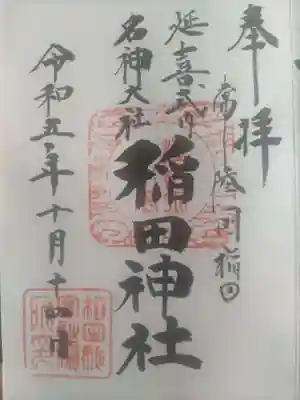 奉拝
常陸国稲田
延喜式内
名神大社
稲田神社
令和五年十月十一日